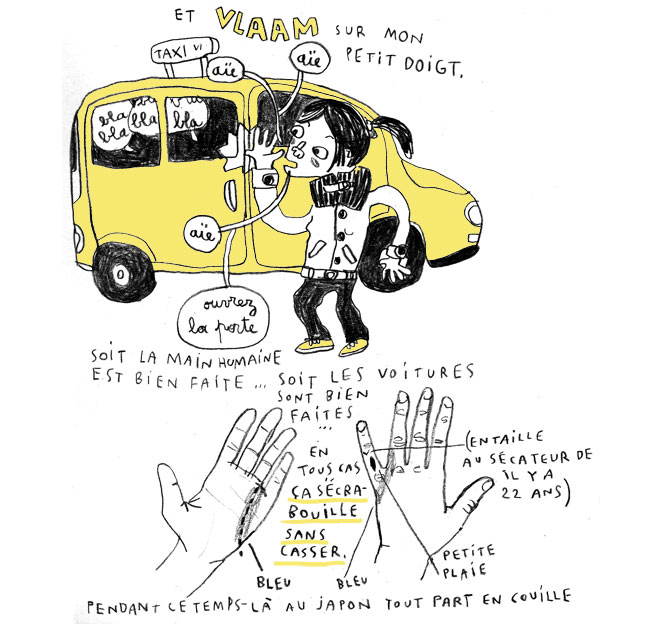 ET VLAAM SUR MON
PETIT DOIGT.
TAXI VI
aïe
aïe
bla bla
bla bla
bla bla
aïe
ouvrez
la porte
SOIT LA MAIN HUMAINE
EST BIEN FAITE ... SOIT LES VOITURES
SONT BIEN
FAITES
...
EN
TOUS CAS
ÇA SÉCRA-
BOUILLE
SANS
CASSER.
(ENTAILLE
AU SÉCATEUR DE
IL Y A
22 ANS)
PETITE
PLAIE
BLEU
BLEU
PENDANT CE TEMPS-LÀ AU JAPON TOUT PART EN COUILLE